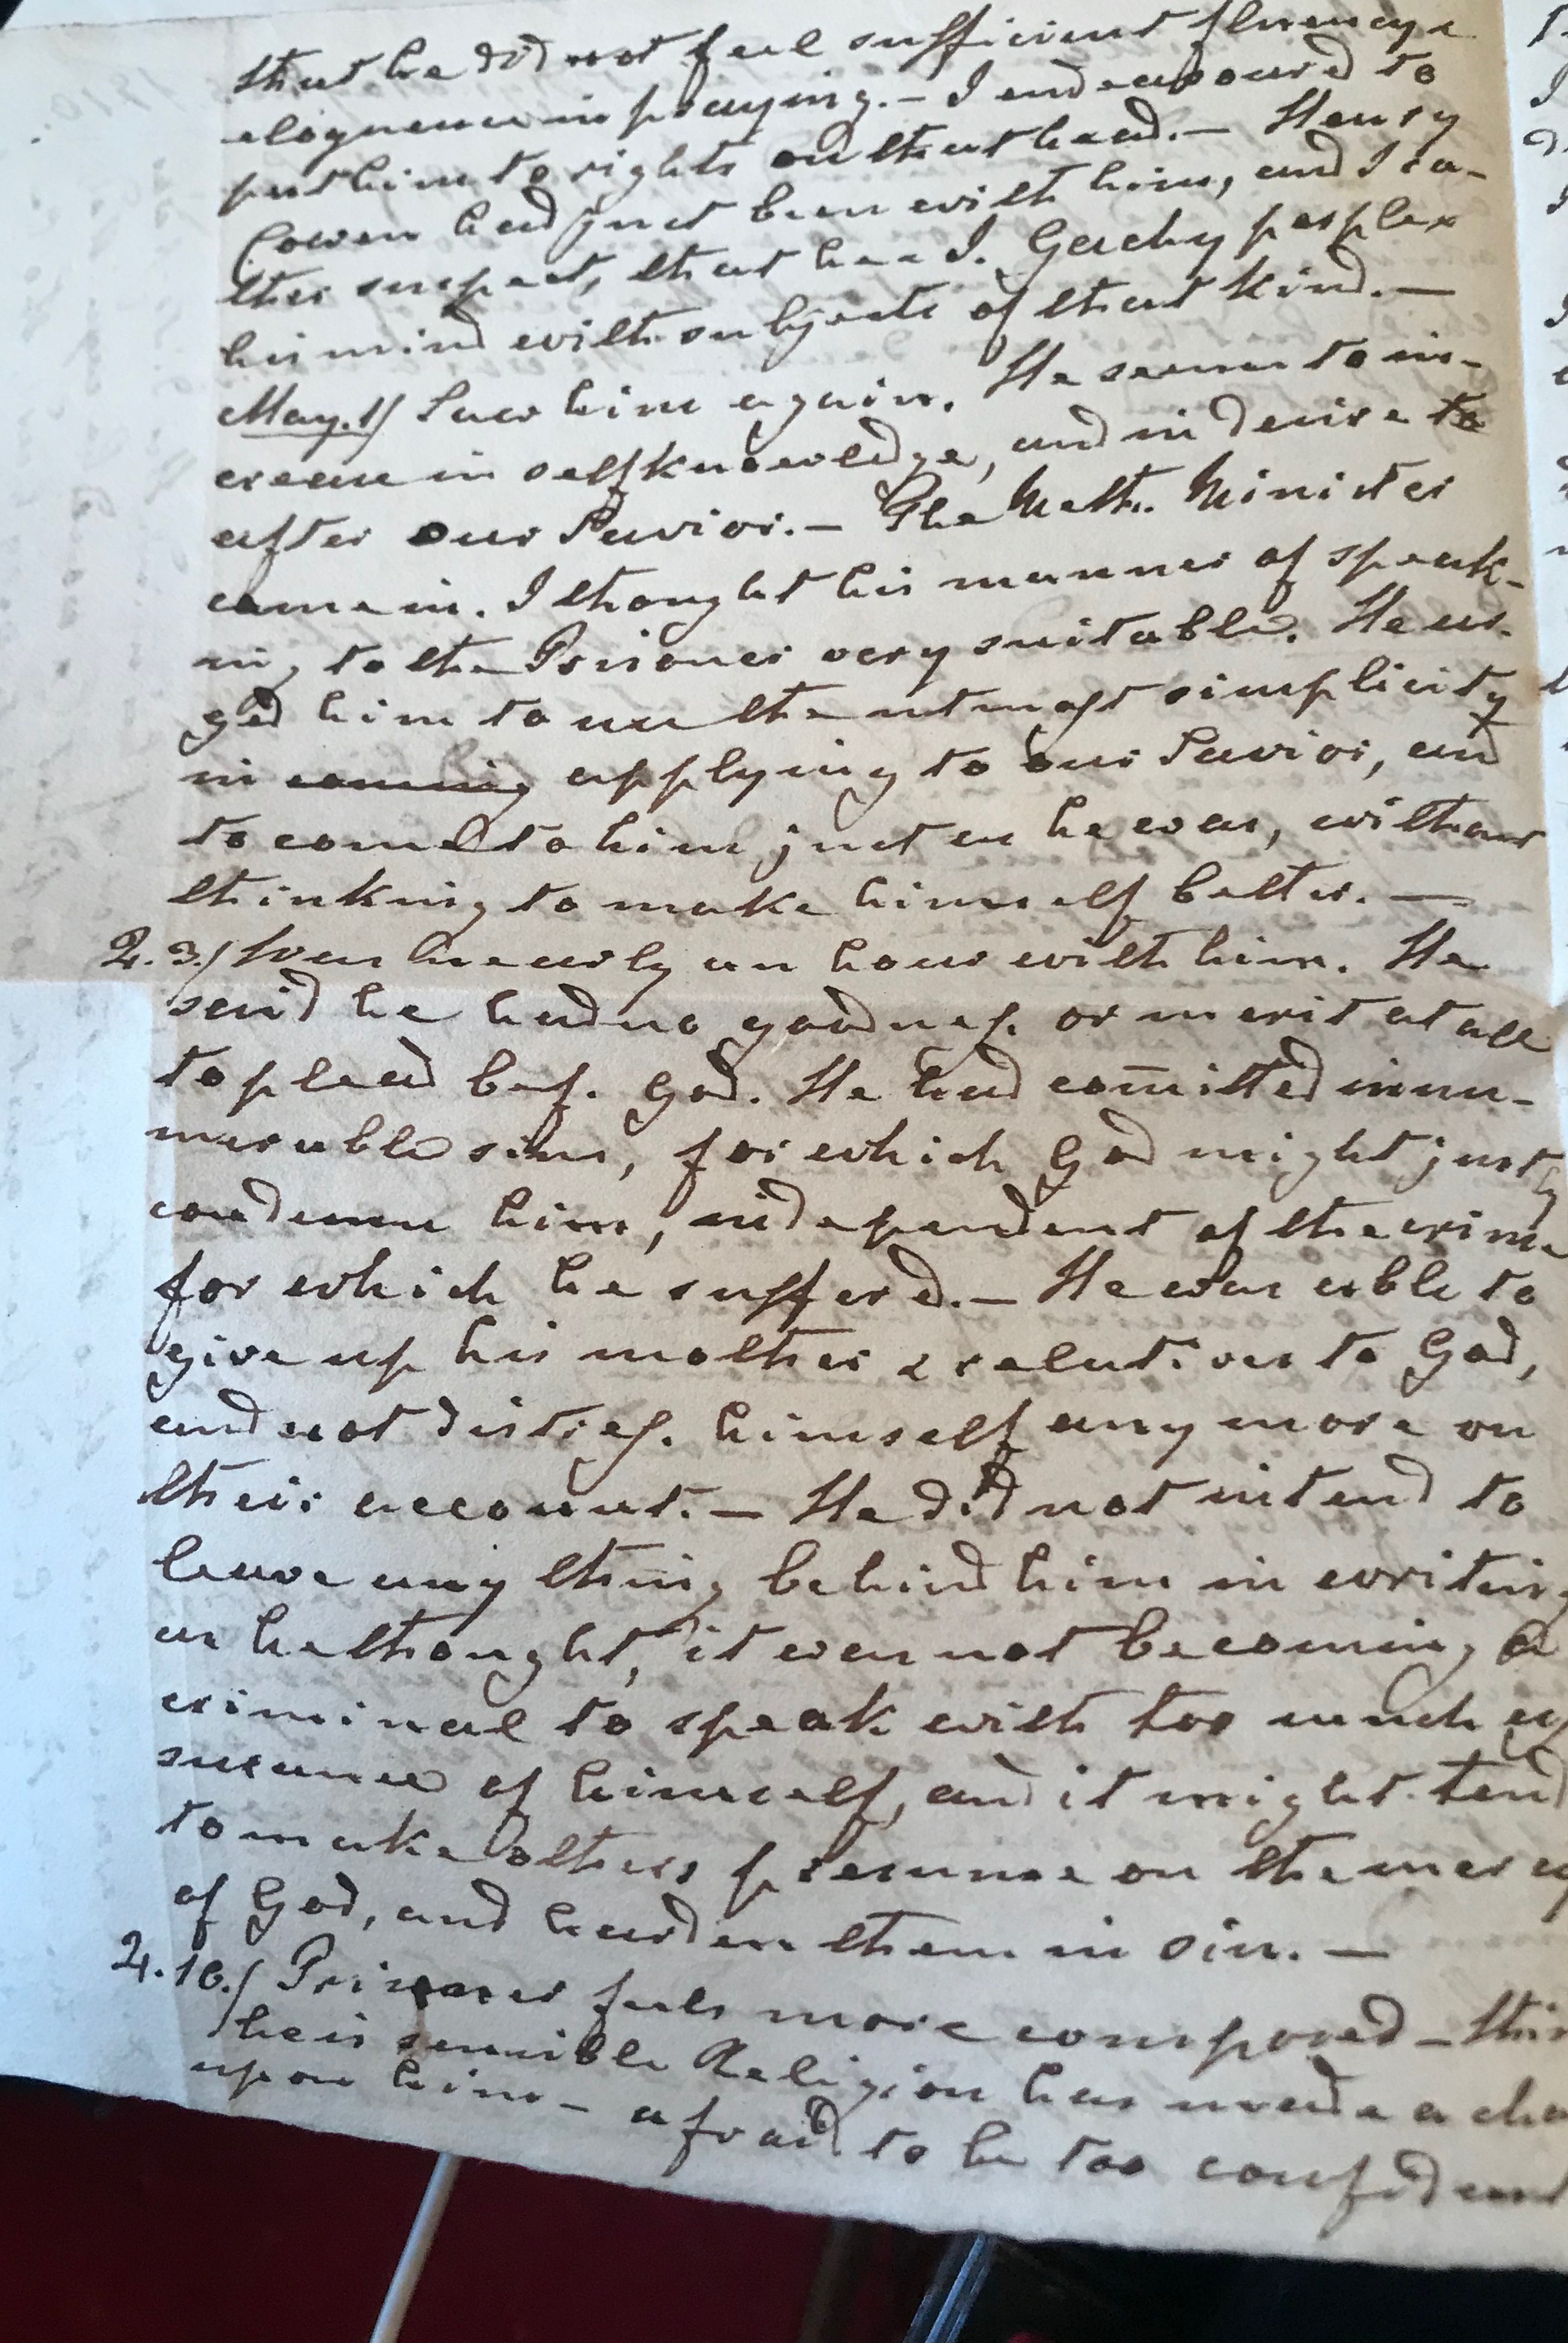 that he did not feel sufficient fluency &
eloquence in praying. — I endeavoured to
put him to rights on that head. — Henry
Cowen had just been with him, and I ra-
ther suspect, that he & I. Gachy perplex
his mind with subjects of that kind. —
May. 1/ Saw him again. He seems to in-
crease in selfknowledge, and in desire
after our Savior. — The Meth. Minister
came in. I thought his manner of speak-
ing to the Prisoner very suitable. He ur-
ged him to use the utmost simplicity
in coming applying to our Savior, and
to come to him just as he was, without
thinking to make himself better. —
2. 3./ Was nearly an hour with him. He
said he had no goodness or merit at all
to plead bef. God. He had com̄itted innu-
merable sins, for which God might justly
condemn him, independent of the crime
for which he suffered. — He was able to
give up his mother & relatives to God,
and not distress himself any more on
their account. — He did not intend to
leave any thing behind him in writing
as he thought, it was not becoming a
criminal to speak with too much as
surance of himself, and it might tend
to make others presume on the mercy
of God, and harden them in sin. —
4. 10./ Prisoner feels more composed — this
he is sensible Religion has made a cha
upon him — afraid to be too confident